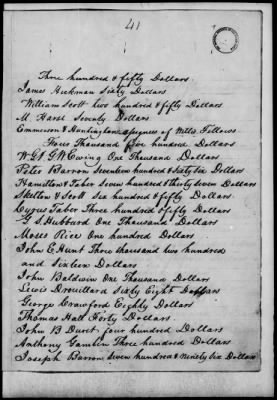 41
Three hundred & fifty Dollars
James Heckman Sixty Dollars
William Scott two hundred & fifty Dollars
M. Harst Seventy Dollars
Emmerson & Huntington assignees of Willis Fellows
Three Thousand five hundred Dollars
W. G. & G. W. Ewing One Thousand Dollars
Peter Barron Seventeen hundred & Sixty Six Dollars
Hamilton & Taber Seven hundred & thirty Seven Dollars
Skelton & Scott Six hundred & fifty Dollars
Cyrus Taber Three Hundred & fifty Dollars
G. S. Hubbard One Thousand Dollars
Moses Rice One hundred Dollars
John E Hunt Three thousand two hundred
and Sixteen Dollars
John Baldwin One Thousand Dollars
Lewis Drouillard Sixty Eight Dollars
George Crawford Eighty Dollars
Thomas Hall Forty Dollars
John B Duret four hundred Dollars
Anthony Gambin Three hundred Dollars
Joseph Barron Seven hundred & Ninety Six Dollars